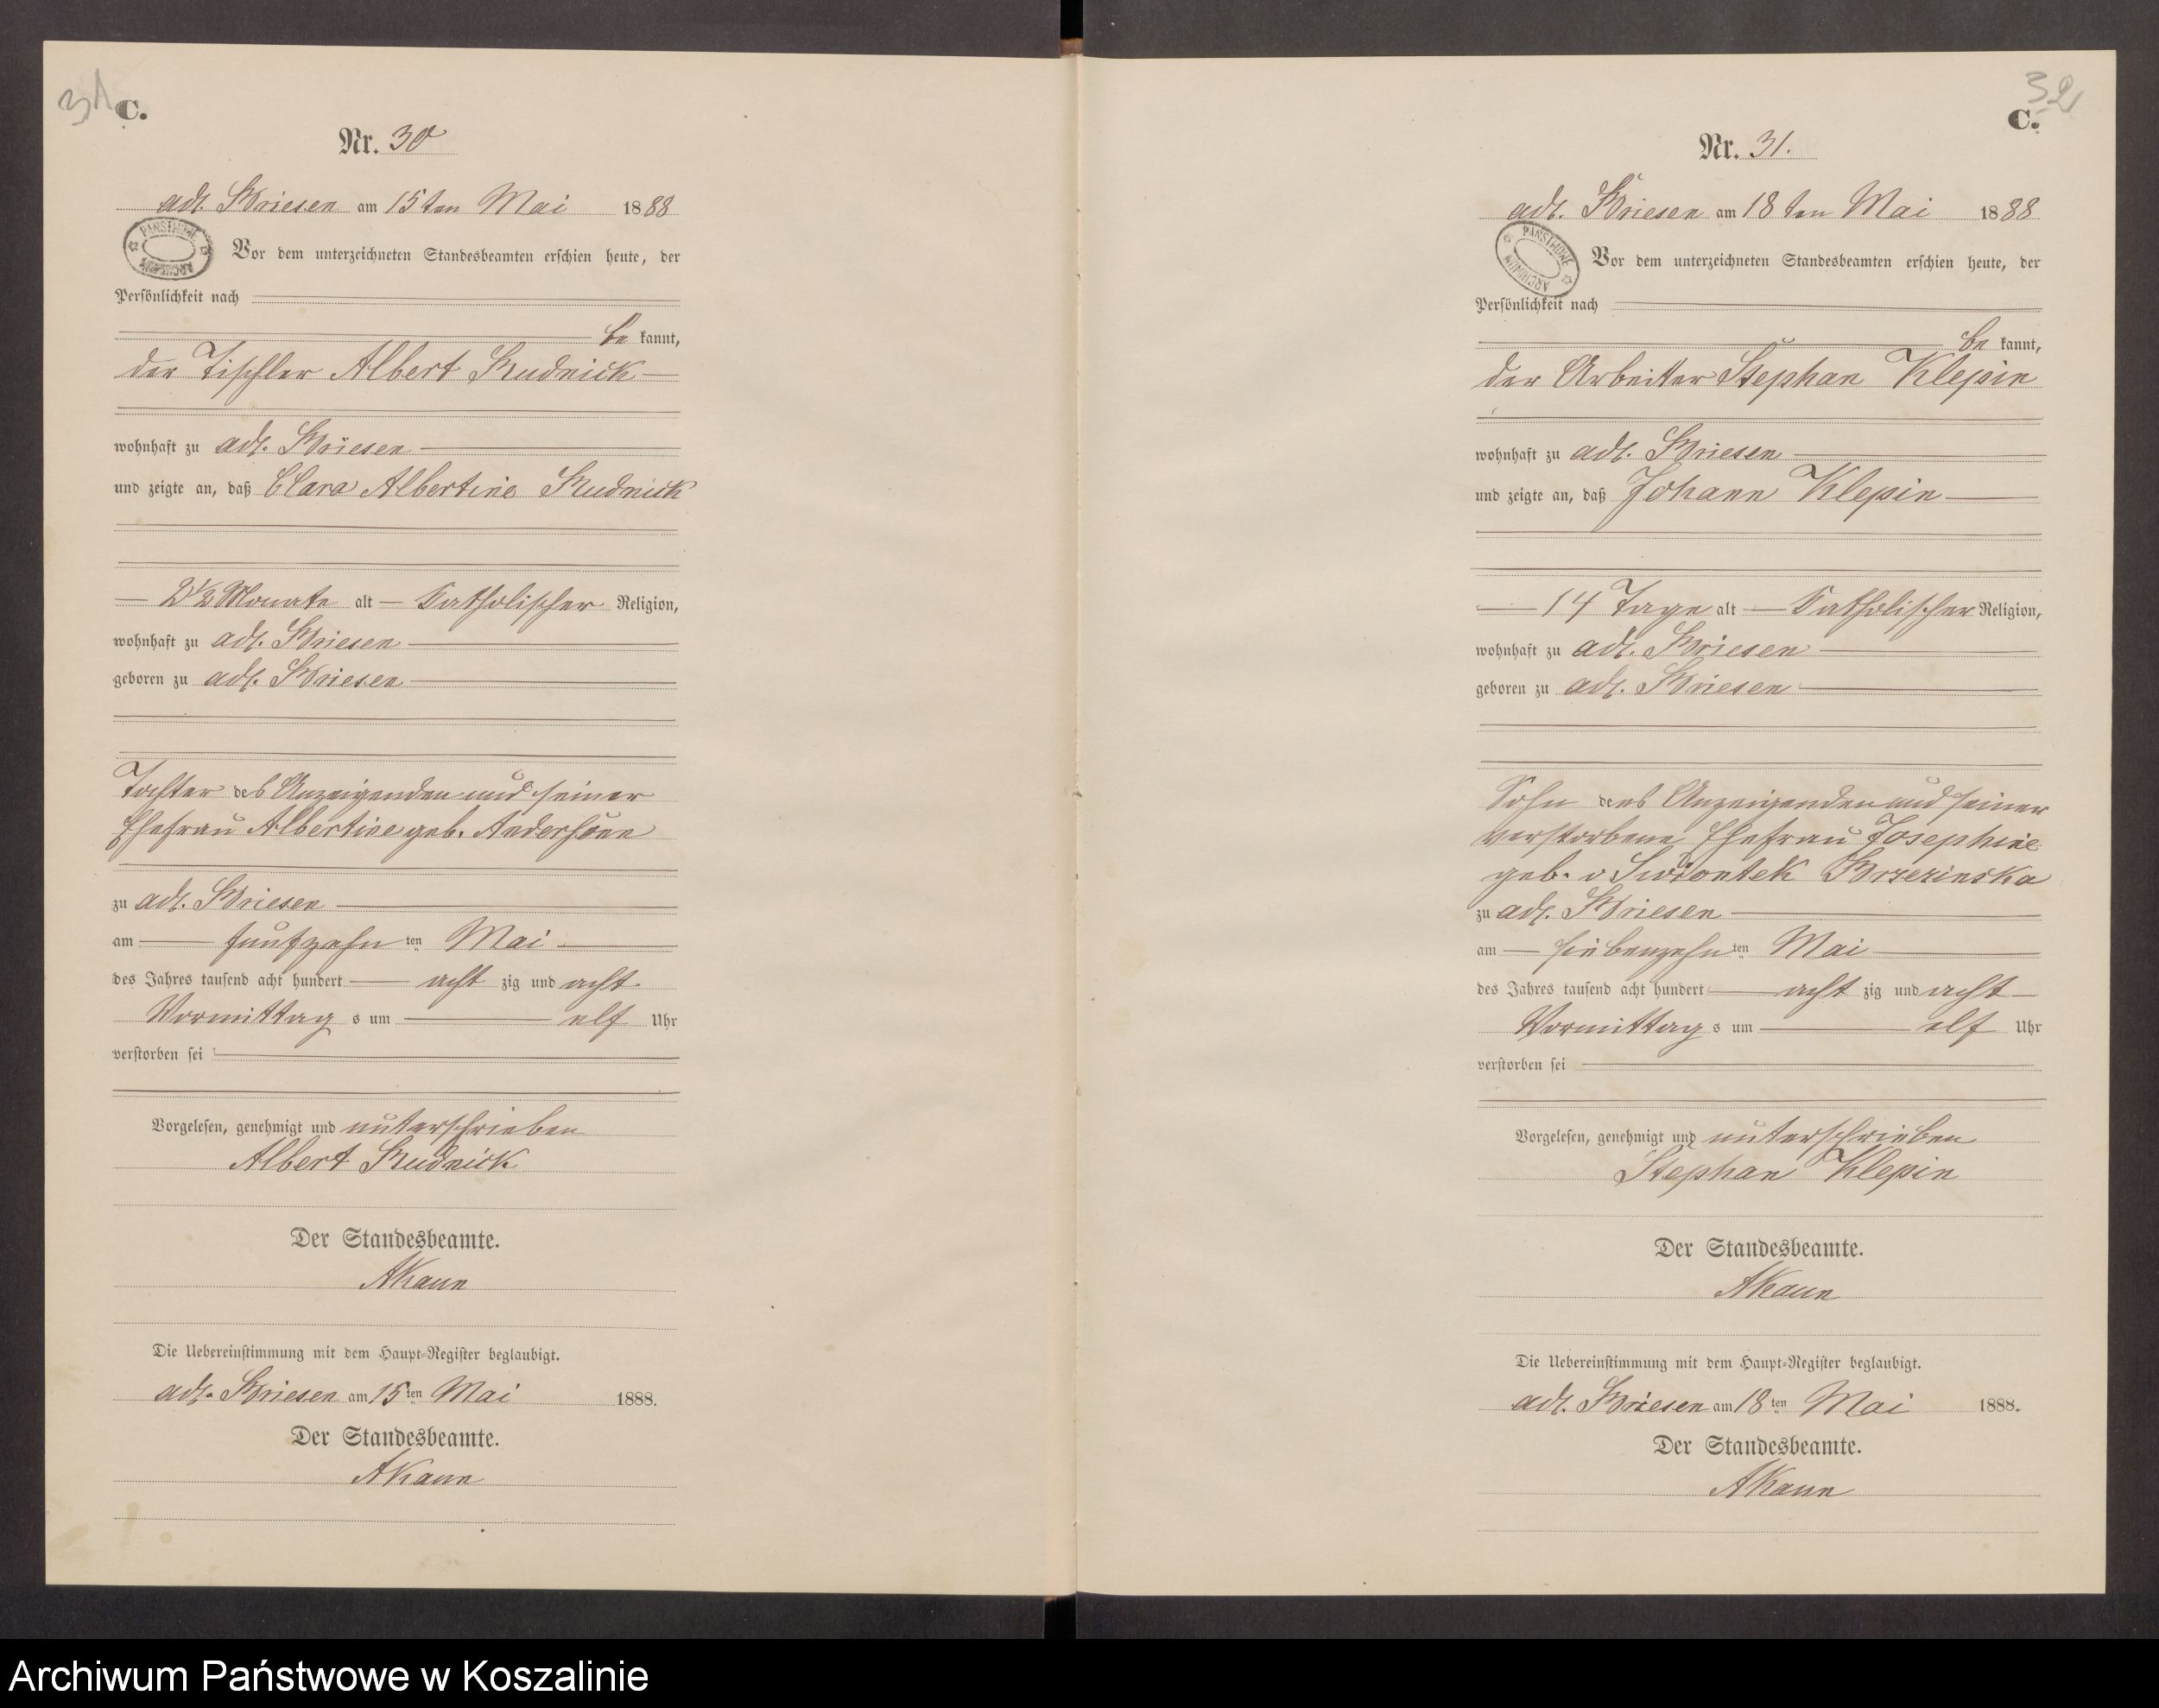 31
C.
Nr. 30
adl. Briesen am 15ten Mai 1888
PAŃSTWOWE ARCHIWUM
Vor dem unterzeichneten Standesbeamten erschien heute, der
Persönlichkeit nach
be kannt,
der Tischler Albert Rudnick
wohnhaft zu adl. Briesen
und zeigte an, daß Clara Albertine Rudnick
2 1/2 Monate alt Katholischer Religion,
wohnhaft zu adl. Briesen
geboren zu adl. Briesen
Tochter des Anzeigenden und seiner
Ehefrau Albertine geb. Andersonn
zu adl. Briesen
am fünfzehn ten Mai
des Jahres tausend acht hundert acht zig und acht
Vormittag s um elf Uhr
verstorben sei
Vorgelesen, genehmigt und unterschrieben
Albert Rudnick
Der Standesbeamte.
AKaun
Die Uebereinstimmung mit dem Haupt-Register beglaubigt.
adl. Briesen am 15 ten Mai 1888.
Der Standesbeamte.
AKaun
32
C.
Nr. 31.
adl. Briesen am 18ten Mai 1888
PAŃSTWOWE ARCHIWUM
Vor dem unterzeichneten Standesbeamten erschien heute, der
Persönlichkeit nach
be kannt,
der Arbeiter Stephan Klepin
wohnhaft zu adl. Briesen
und zeigte an, daß Johann Klepin
14 Tage alt Katholischer Religion,
wohnhaft zu adl. Briesen
geboren zu adl. Briesen
Sohn des Anzeigenden und seiner
verstorbene Ehefrau Josephine
geb. v Swiontek Brzezinska
zu adl. Briesen
am siebenzehn ten Mai
des Jahres tausend acht hundert acht zig und acht
Vormittag s um elf Uhr
verstorben sei
Vorgelesen, genehmigt und unterschrieben
Stephan Klepin
Der Standesbeamte.
AKaun
Die Uebereinstimmung mit dem Haupt-Register beglaubigt.
adl. Briesen am 18 ten Mai 1888.
Der Standesbeamte.
AKaun
Archiwum Państwowe w Koszalinie